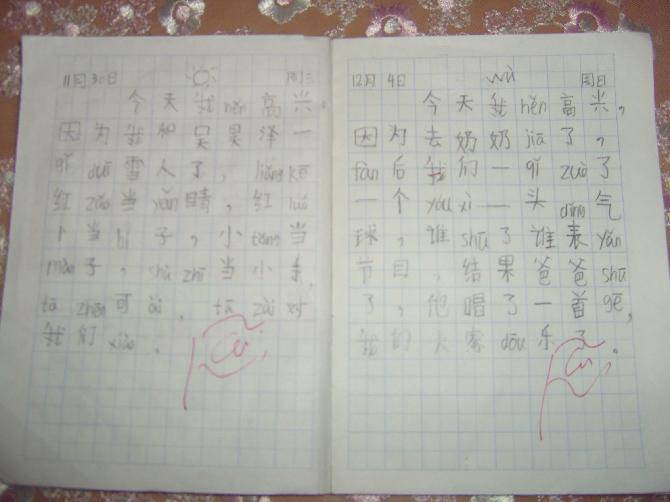 11月30日 周三
今天我hěn高兴。
因为我和吴昊泽一
qǐ duī雪人了，liǎng kē
红zǎo当yǎn睛，红luó
卜当bí子，小tǒng当
mào子，shù zhī当小手，
tā zhēn可ài，tā zài对
我们xiào。
12月4日 wù 周日
今天我hěn高兴，
因为去奶奶jiā了，
fàn后我们一qǐ zuò了
一个yóu xì——头dǐng气
球，谁shū了谁表yǎn
节目，结果爸爸shū
了，他唱了一首gē，
我们大家dōu乐了。